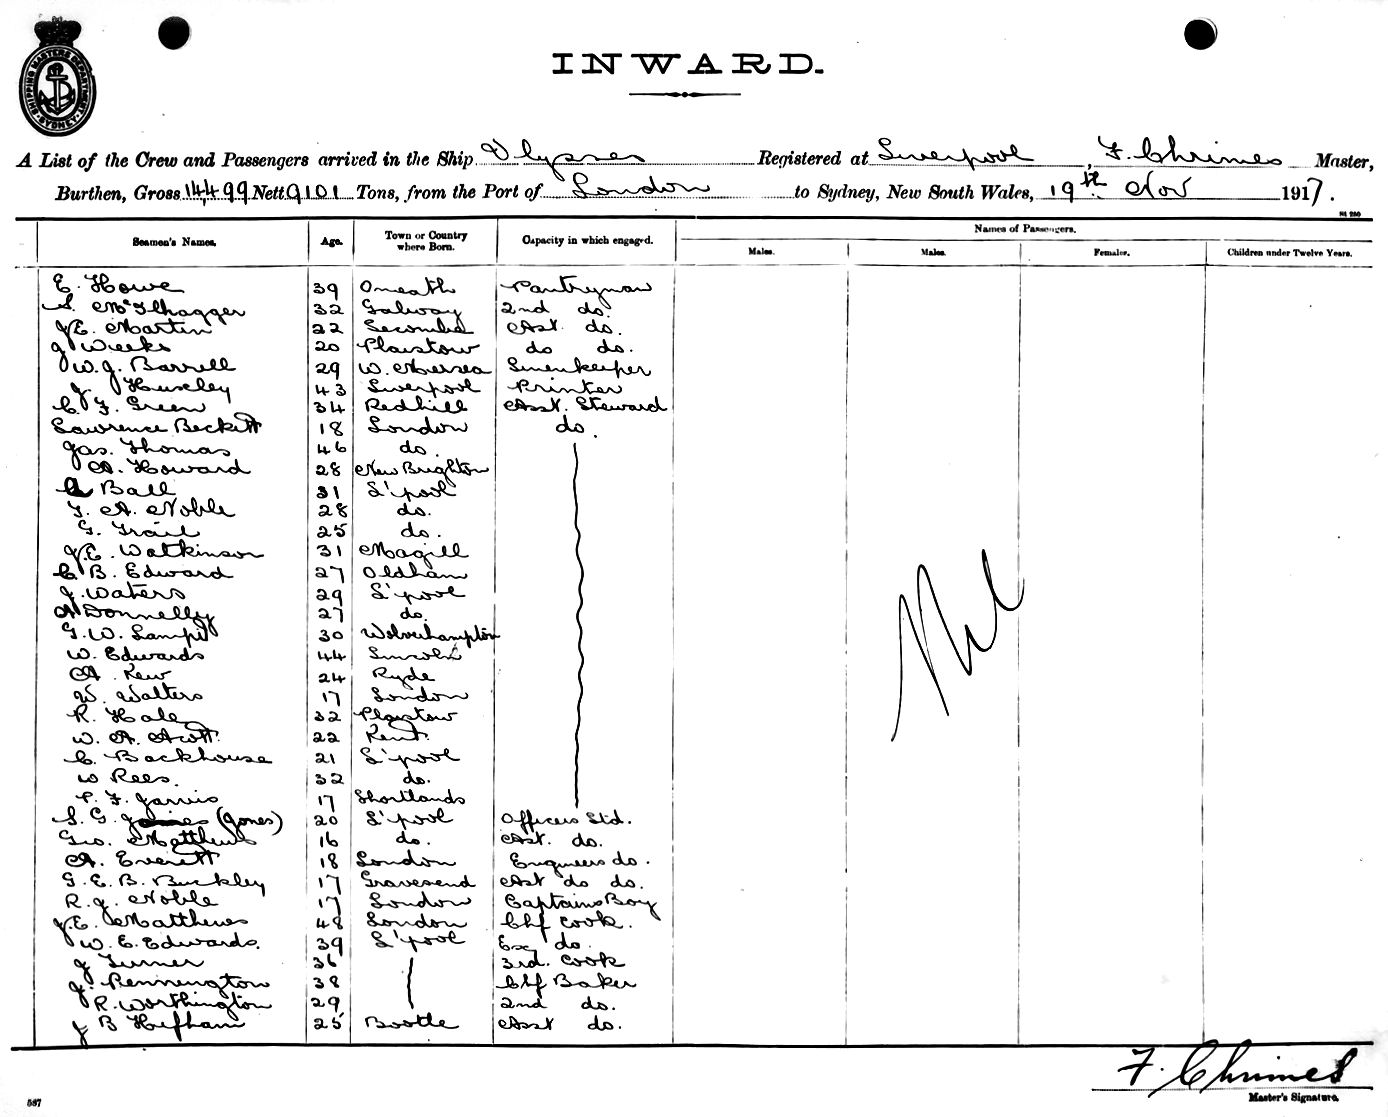 SHIPPING MASTERS DEPARTMENT SYDNEY
INWARD.
A List of the Crew and Passengers arrived in the Ship Ulysses Registered at Liverpool, F. Chrimes Master,
Burthen, Gross 14499 Nett 9101 Tons, from the Port of London to Sydney, New South Wales, 19th Nov 1917.
Seamen's Names. Age. Town or Country where Born. Capacity in which engaged. Names of Passengers.
Males. Males. Females. Children under Twelve Years.
E. Howe 39 Omeath Pantryman
S. McIlhagger 32 Galway 2nd do.
J.E. Martin 22 Seacombe Ast. do.
J Weeks 20 Plaistow do do.
W.J. Barrell 29 W. Mersea Linenkeeper
J. Huxley 43 Liverpool Printer
C. F. Green 34 Redhill Asst. Steward
Lawrence Beckett 18 London do.
Jas. Thomas 46 do.
A. Howard 28 New Brighton
Ball 31 L'pool
F. A. Noble 28 do.
G. Trail 25 do.
J.E. Watkinson 31 Magill
C. B. Edward 27 Oldham
J. Waters 29 L'pool
A Donnelly 27 do.
G. W. 30 Wolverhampton
W. Edwards 44 Lincoln
A. Kew 24 Ryde
W. Walters 17 London
R. Hale 32 Plaistow
W. A. Scott. 22 Kent.
C. Backhouse 21 L'pool
W Rees. 32 do.
F. Jarvis 17 Shortlands
S. G. (Jones) 20 L'pool Officers Std.
Geo. Matthews 16 do. Ast. do.
A. Everett 18 London Engineers do.
G. E. B. Buckley 17 Gravesend Ast do do.
R. J. Noble 17 London Captains Boy
J.E. Matthews 48 London Chf Cook.
W. E. Edwards. 39 L'pool Ex do.
J Turner 36 3rd. Cook
J. Pennington 38 Chf Baker
R. Worthington 29 2nd do.
J B Hefham 25 Bootle Asst do.
Nil
F. Chrimes
Master's Signature.
587